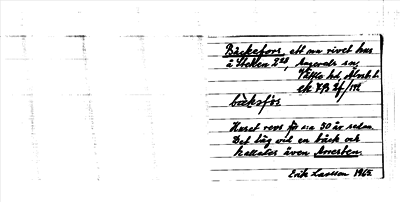 Bäckefors, ett nu rivet hus
å Steken 2²⁸, Angereds sn,
Vättle hd, Älvsb. l.
ek XB 2f/112
bäksfös
Huset revs för c:a 30 år sedan.
Det låg vid en bäck och
kallades även Arresten.
Erik Larsson 1962.